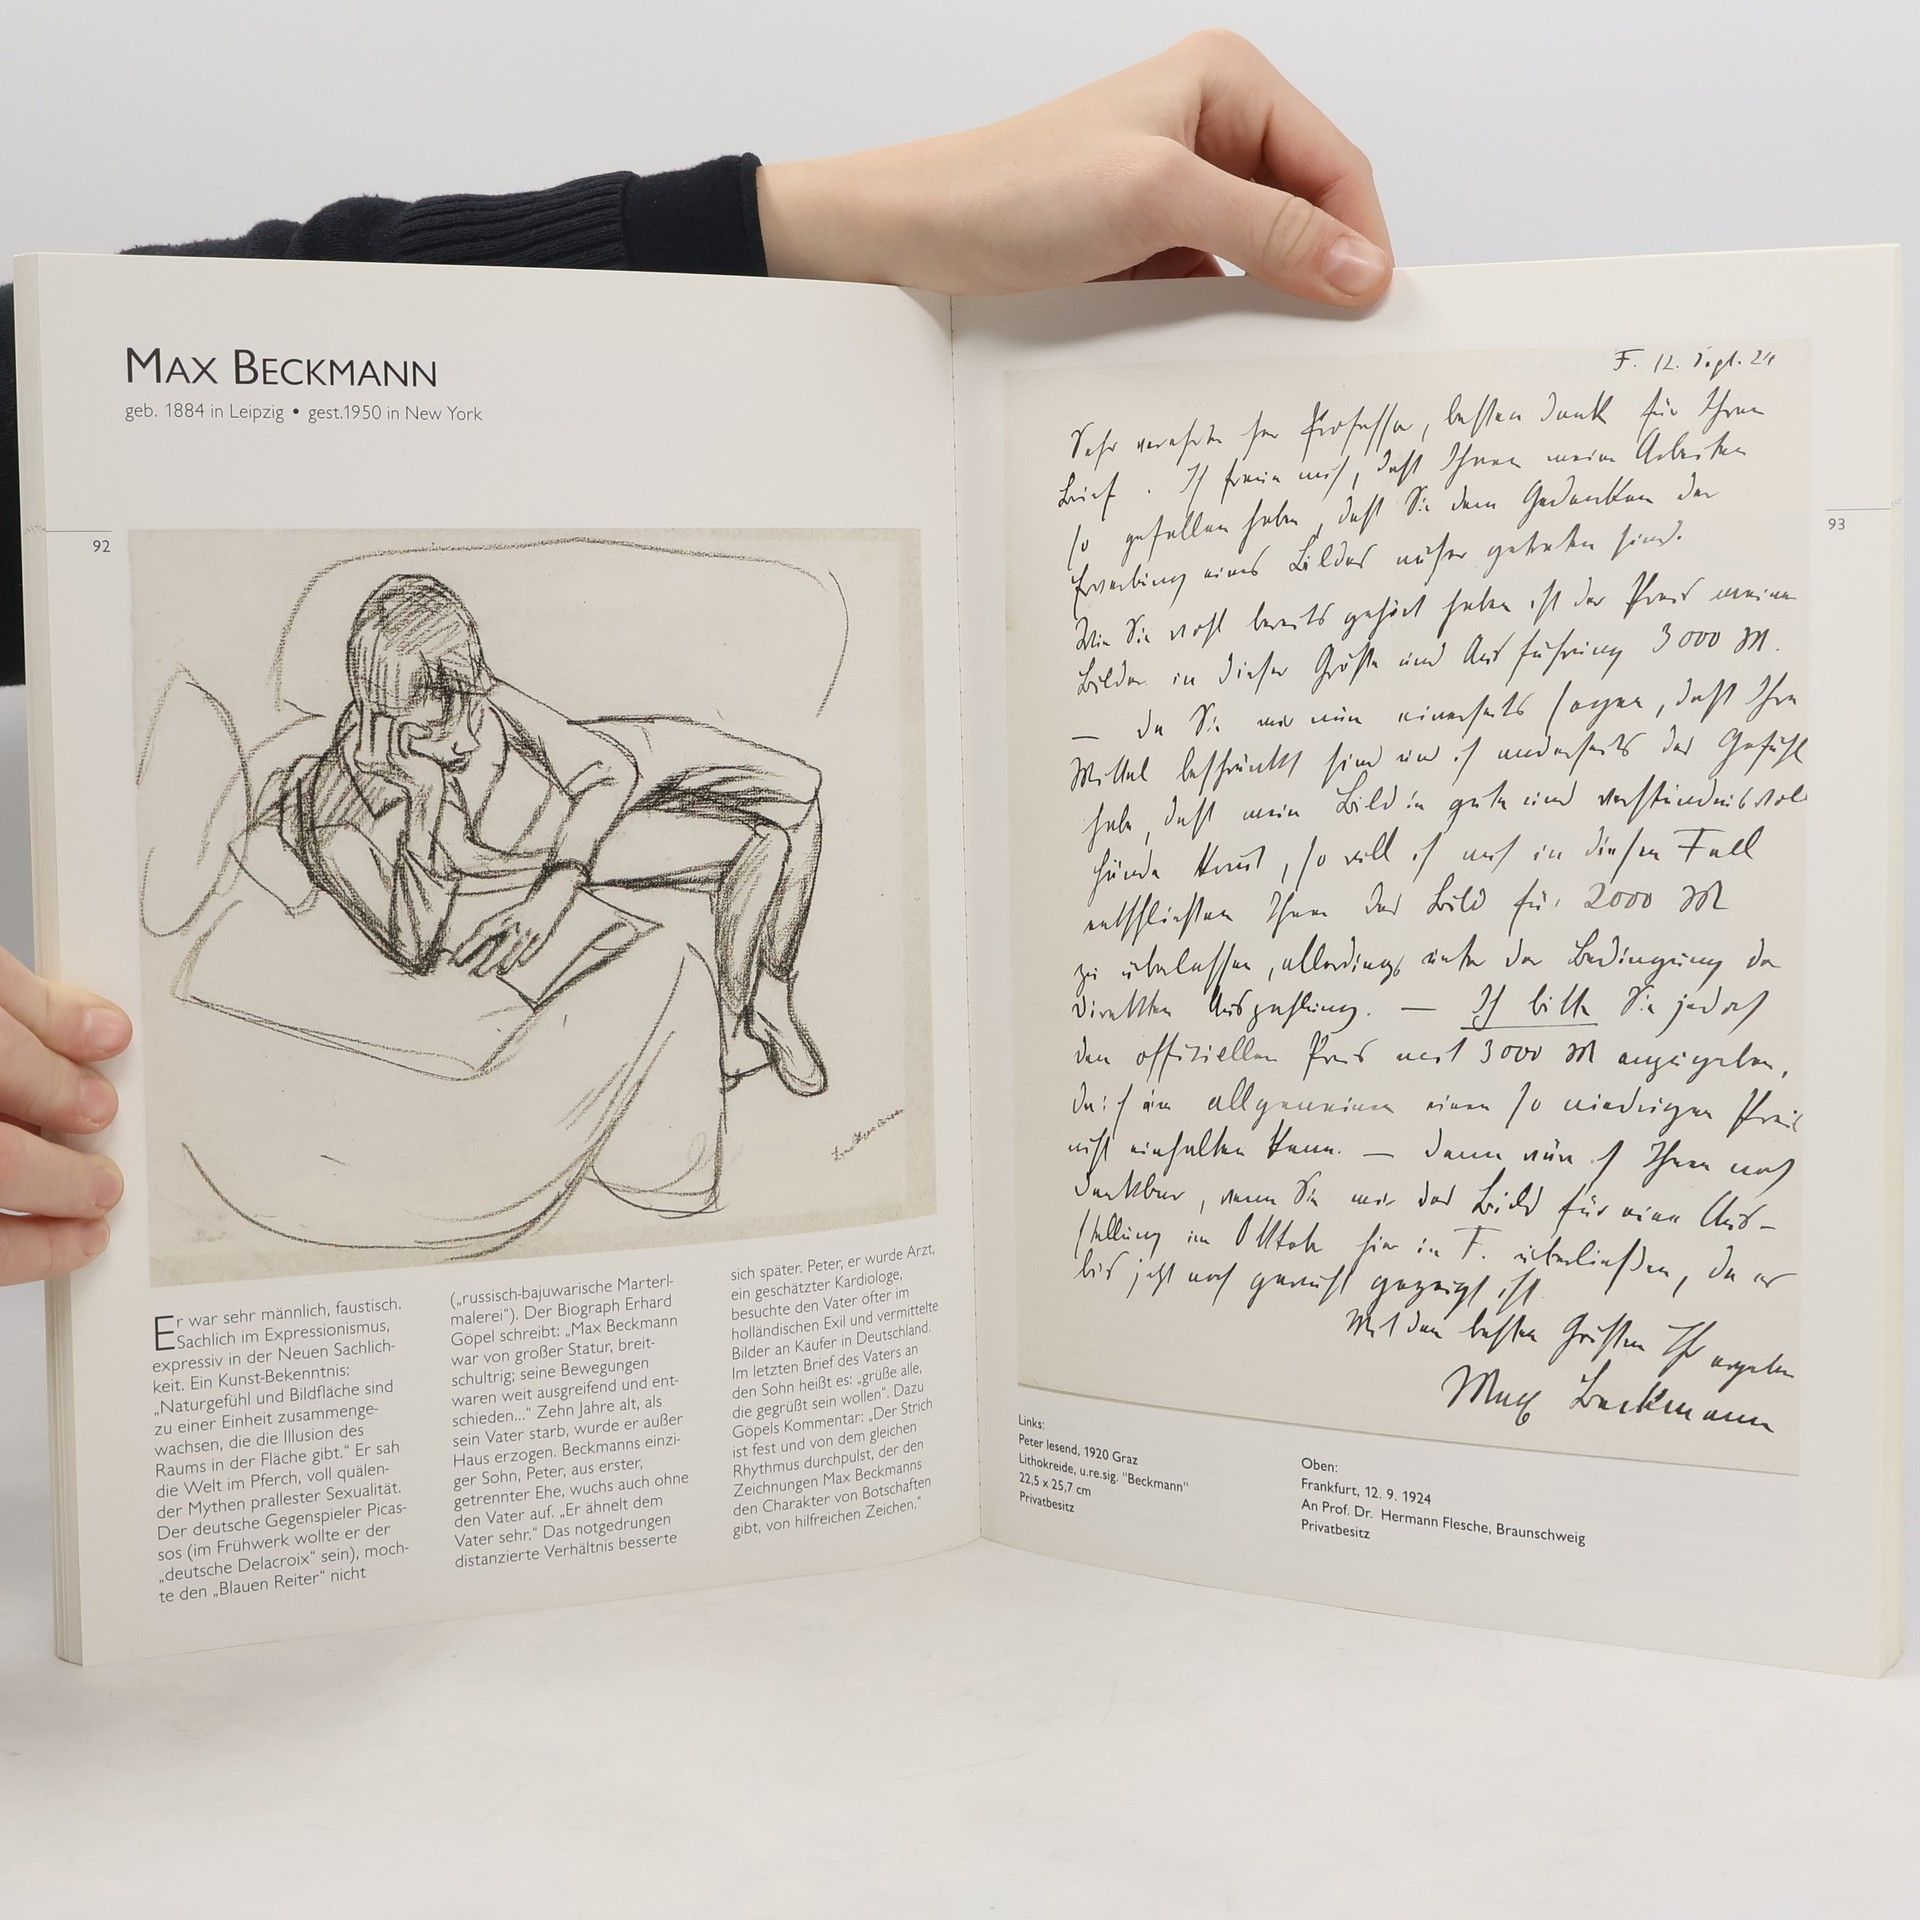 MAX BECKMANN
geb. 1884 in Leipzig • gest.1950 in New York
92
Beckmann
Er war sehr männlich, faustisch.
Sachlich im Expressionismus,
expressiv in der Neuen Sachlich-
keit. Ein Kunst-Bekenntnis:
„Naturgefühl und Bildfläche sind
zu einer Einheit zusammenge-
wachsen, die die Illusion des
Raums in der Fläche gibt.“ Er sah
die Welt im Pferch, voll quälen-
der Mythen prallester Sexualität.
Der deutsche Gegenspieler Picas-
sos (im Frühwerk wollte er der
„deutsche Delacroix“ sein), moch-
te den „Blauen Reiter“ nicht
(„russisch-bajuwarische Marterl-
malerei“). Der Biograph Erhard
Göpel schreibt: „Max Beckmann
war von großer Statur, breit-
schultrig; seine Bewegungen
waren weit ausgreifend und ent-
schieden...“ Zehn Jahre alt, als
sein Vater starb, wurde er außer
Haus erzogen. Beckmanns einzi-
ger Sohn, Peter, aus erster,
getrennter Ehe, wuchs auch ohne
den Vater auf. „Er ähnelt dem
Vater sehr.“ Das notgedrungen
distanzierte Verhältnis besserte
sich später. Peter, er wurde Arzt,
ein geschätzter Kardiologe,
besuchte den Vater öfter im
holländischen Exil und vermittelte
Bilder an Käufer in Deutschland.
Im letzten Brief des Vaters an
den Sohn heißt es: „grüße alle,
die gegrüßt sein wollen“. Dazu
Göpels Kommentar: „Der Strich
ist fest und von dem gleichen
Rhythmus durchpulst, der den
Zeichnungen Max Beckmanns
den Charakter von Botschaften
gibt, von hilfreichen Zeichen.“
93
F. 12. Sept. 24
Sehr verehrter Herr Professor, besten Dank für Ihren
Brief. Ich freue mich, daß Ihnen meine Arbeiten
so gefallen haben, daß Sie dem Gedanken der
Erwerbung eines Bildes näher getreten sind.
Wie Sie wohl bereits gehört haben ist der Preis meiner
Bilder in dieser Größe und Ausführung 3000 M.
— Da Sie mir nun einerseits sagen, daß Ihre
Mittel beschränkt sind und ich anderseits das Gefühl
habe, daß mein Bild in gute und verständnisvolle
Hände kommt, so will ich mich in diesem Fall
entschließen Ihnen das Bild für 2000 M
zu überlassen, allerdings unter der Bedingung der
direkten Auszahlung. — Ich bitte Sie jedoch
den offiziellen Preis mit 3000 M anzugeben,
da ich im allgemeinen einen so niedrigen Preis
nicht einhalten kann. — Dann wäre ich Ihnen noch
dankbar, wenn Sie mir das Bild für eine Aus-
stellung im Oktober hier in F. überließen, da es
bis jetzt noch gezeigt ist.
Mit den besten Grüßen Ihr ergebener
Max Beckmann
Links:
Peter lesend, 1920 Graz
Lithokreide, u.re.sig. "Beckmann"
22,5 x 25,7 cm
Privatbesitz
Oben:
Frankfurt, 12. 9. 1924
An Prof. Dr. Hermann Flesche, Braunschweig
Privatbesitz